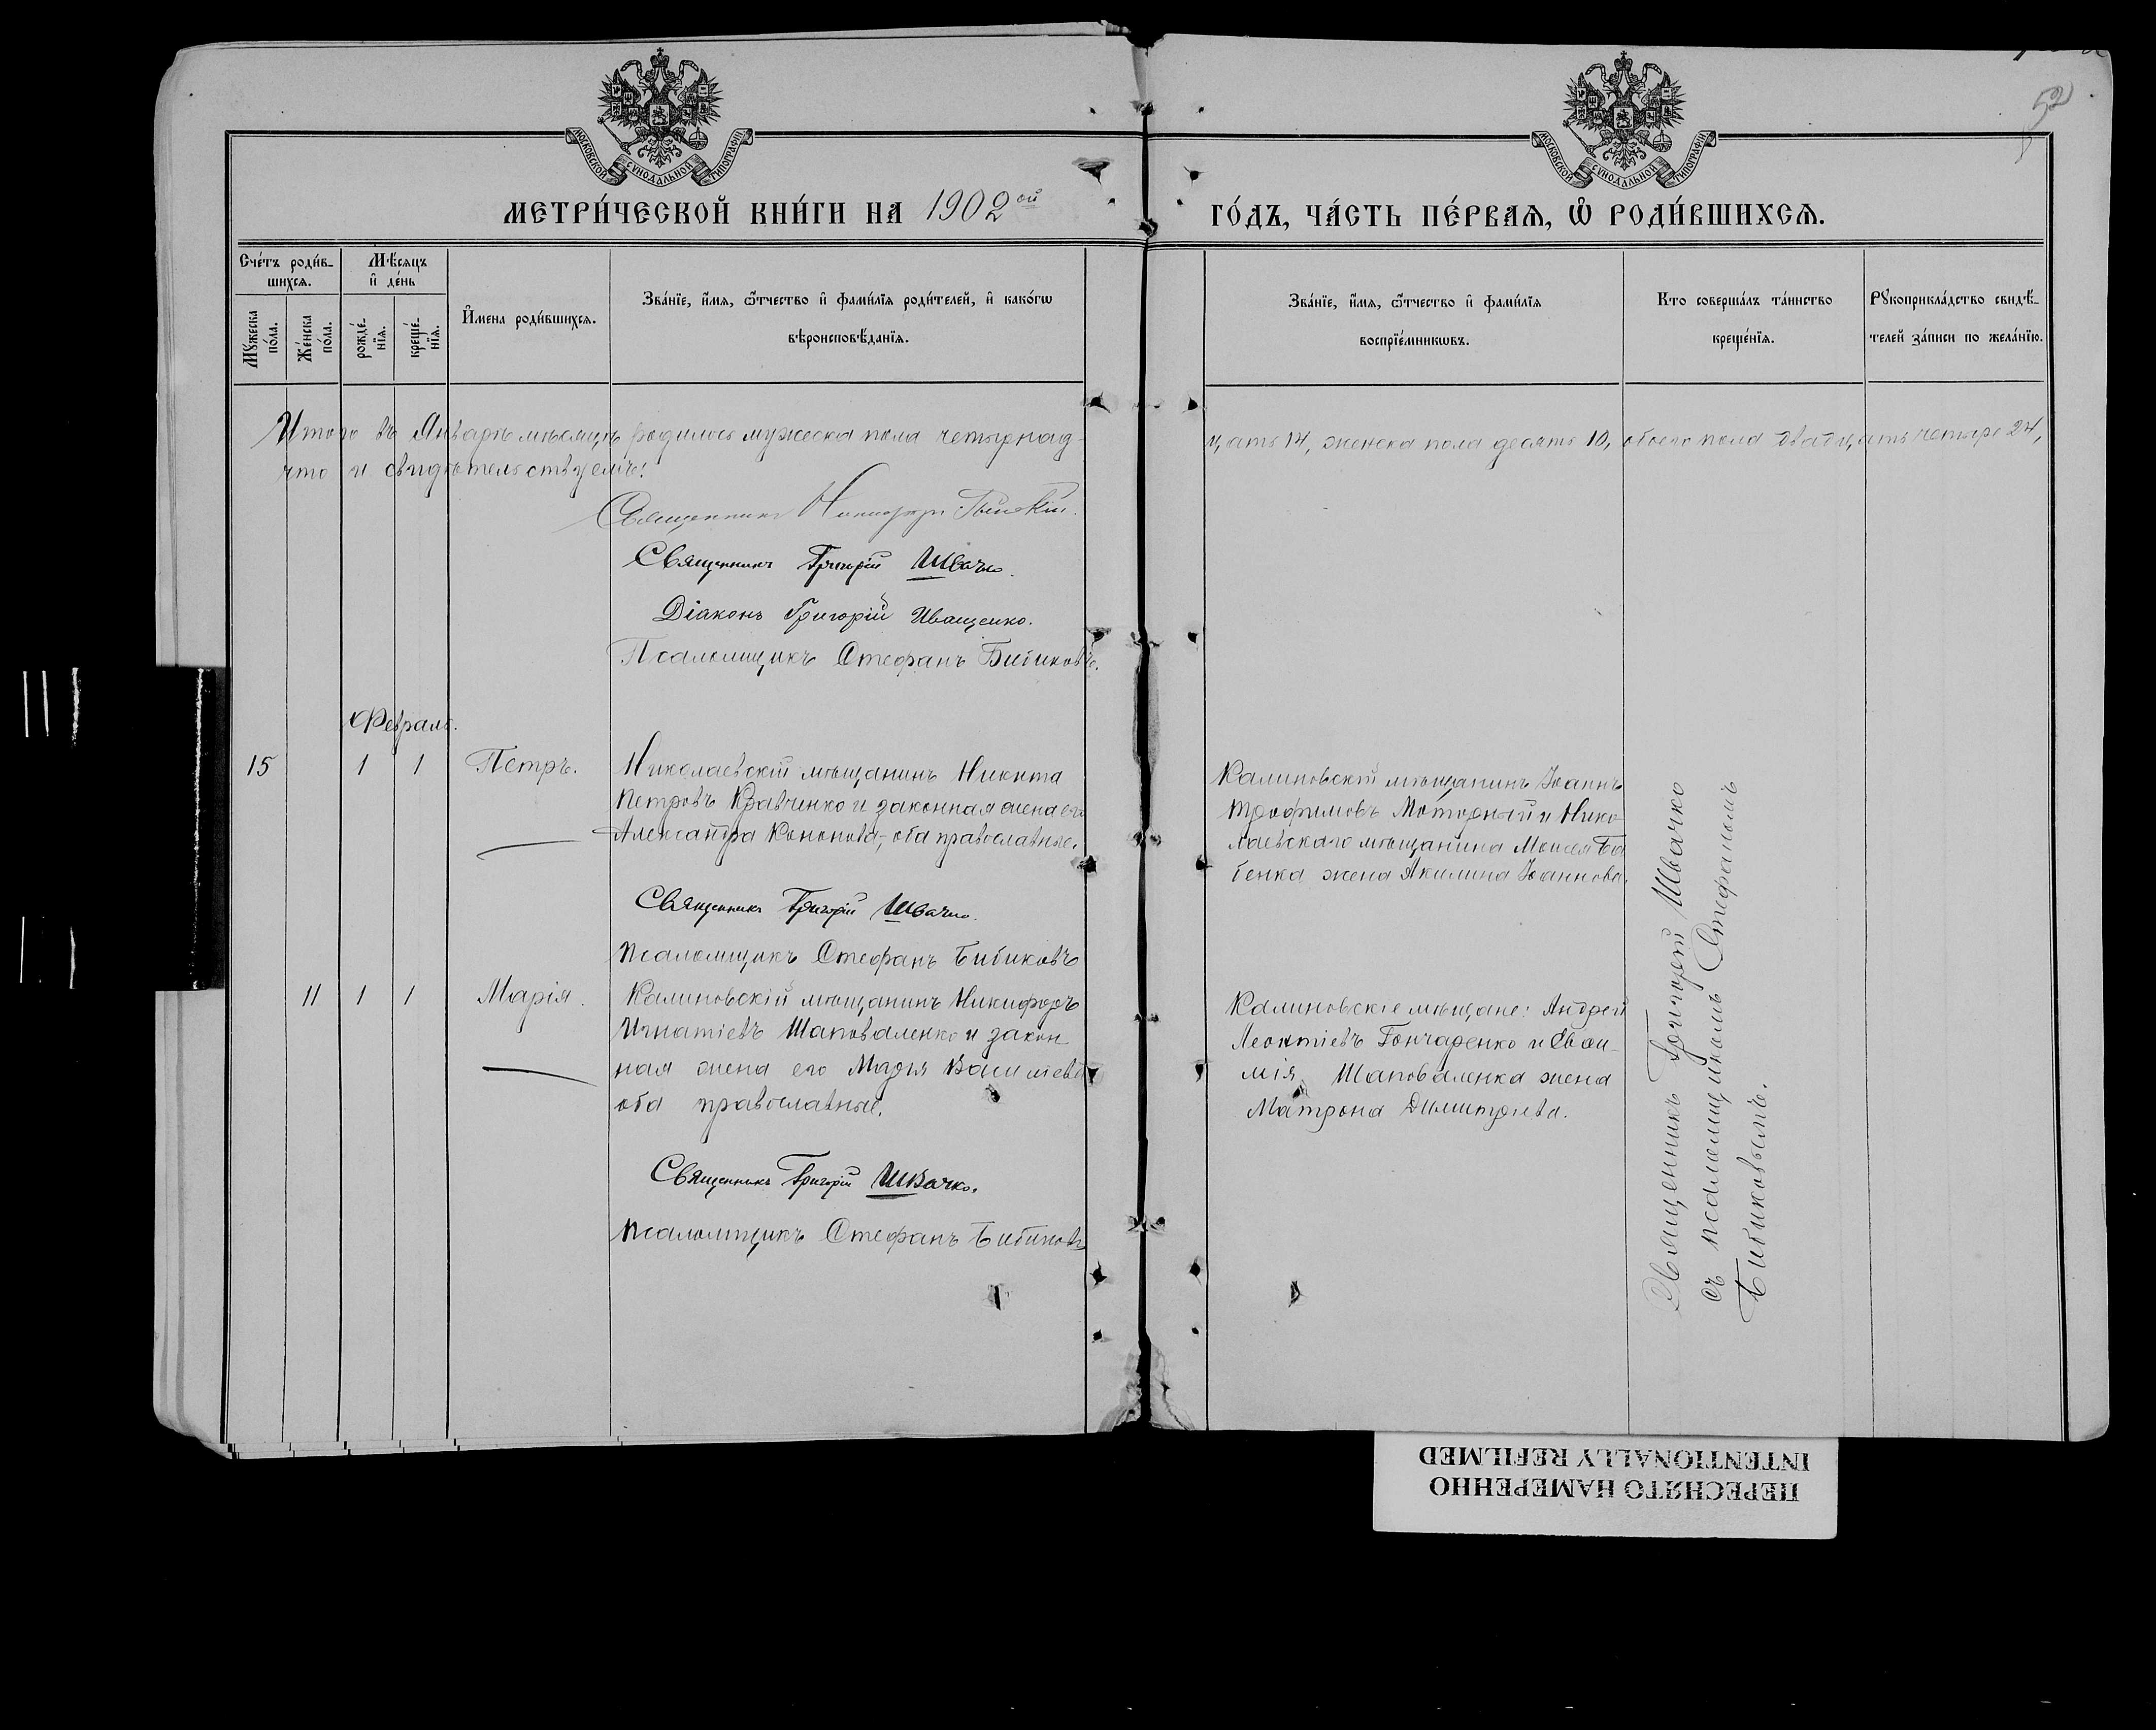 52
МОСКОВСКОЙ СУНОДАЛЬНОЙ ТИПОГРАФІИ
МОСКОВСКОЙ СУНОДАЛЬНОЙ ТИПОГРАФІИ
МЕТРИ́ЧЕСКОЙ КНИ́ГИ НА 1902ой
ГО́ДЪ, ЧА́СТЬ ПЕ́РВАЯ, Ѽ РОДИ́ВШИХСѦ.
Сче́тъ роди́в-
шихсѧ.
Мѣ́сѧцъ
и҆ де́нь
Мꙋ́жеска
по́ла.
Же́нска
по́ла.
рожде́-
нїѧ.
креще́-
нїѧ.
И҆мена роди́вшихсѧ.
Зва́нїе, и҆́мѧ, ѻ҆́тчество и҆ фами́лїѧ роди́телей, и҆ како́гѡ
вѣроисповѣ́данїѧ.
Зва́нїе, и҆́мѧ, ѻ҆́тчество и҆ фами́лїѧ
воспрїе́мникѡвъ.
Кто соверша́лъ та́инство
креще́нїѧ.
Рꙋкоприкла́дство свидѣ́-
телей за́писи по жела́нїю.
Итого въ Январѣ мѣсяцѣ родилось мужеска пола четырнад-
цать 14, женска пола десять 10, обоего пола двадцать четыре 24,
что и свидѣтельствуемъ:
Священникъ Никифоръ
Священникъ Григорій Швачко.
Діаконъ Григорій Иващенко.
Псаломщикъ Стефанъ Бибиковъ.
Февраль.
15 1 1 Петръ.
Николаевскій мѣщанинъ Никита
Петровъ Кравченко и законная жена его
Александра Кононова, оба православные.
Священникъ Григорій Швачко.
Псаломщикъ Стефанъ Бибиковъ
Калиновскій мѣщанинъ Іоаннъ
Трофимовъ Моторный и Нико-
лаевскаго мѣщанина Моисея Ба
бенка жена Акилина Іоаннова.
11 1 1 Марія.
Калиновскій мѣщанинъ Никифоръ
Игнатіевъ Шаповаленко и закон
ная жена его Марія Василіева
оба православные.
Священникъ Григорій Швачко.
Псаломщикъ Стефанъ Бибиковъ
Калиновскіе мѣщане: Андрей
Леонтіевъ Гончаренко и
Шаповаленка жена
Матрона Димитріева.
Священникъ Григорій Швачко
съ псаломщикомъ Стефаномъ
Бибиковымъ.
ПЕРЕСНЯТО НАМЕРЕННО
INTENTIONALLY REFILMED